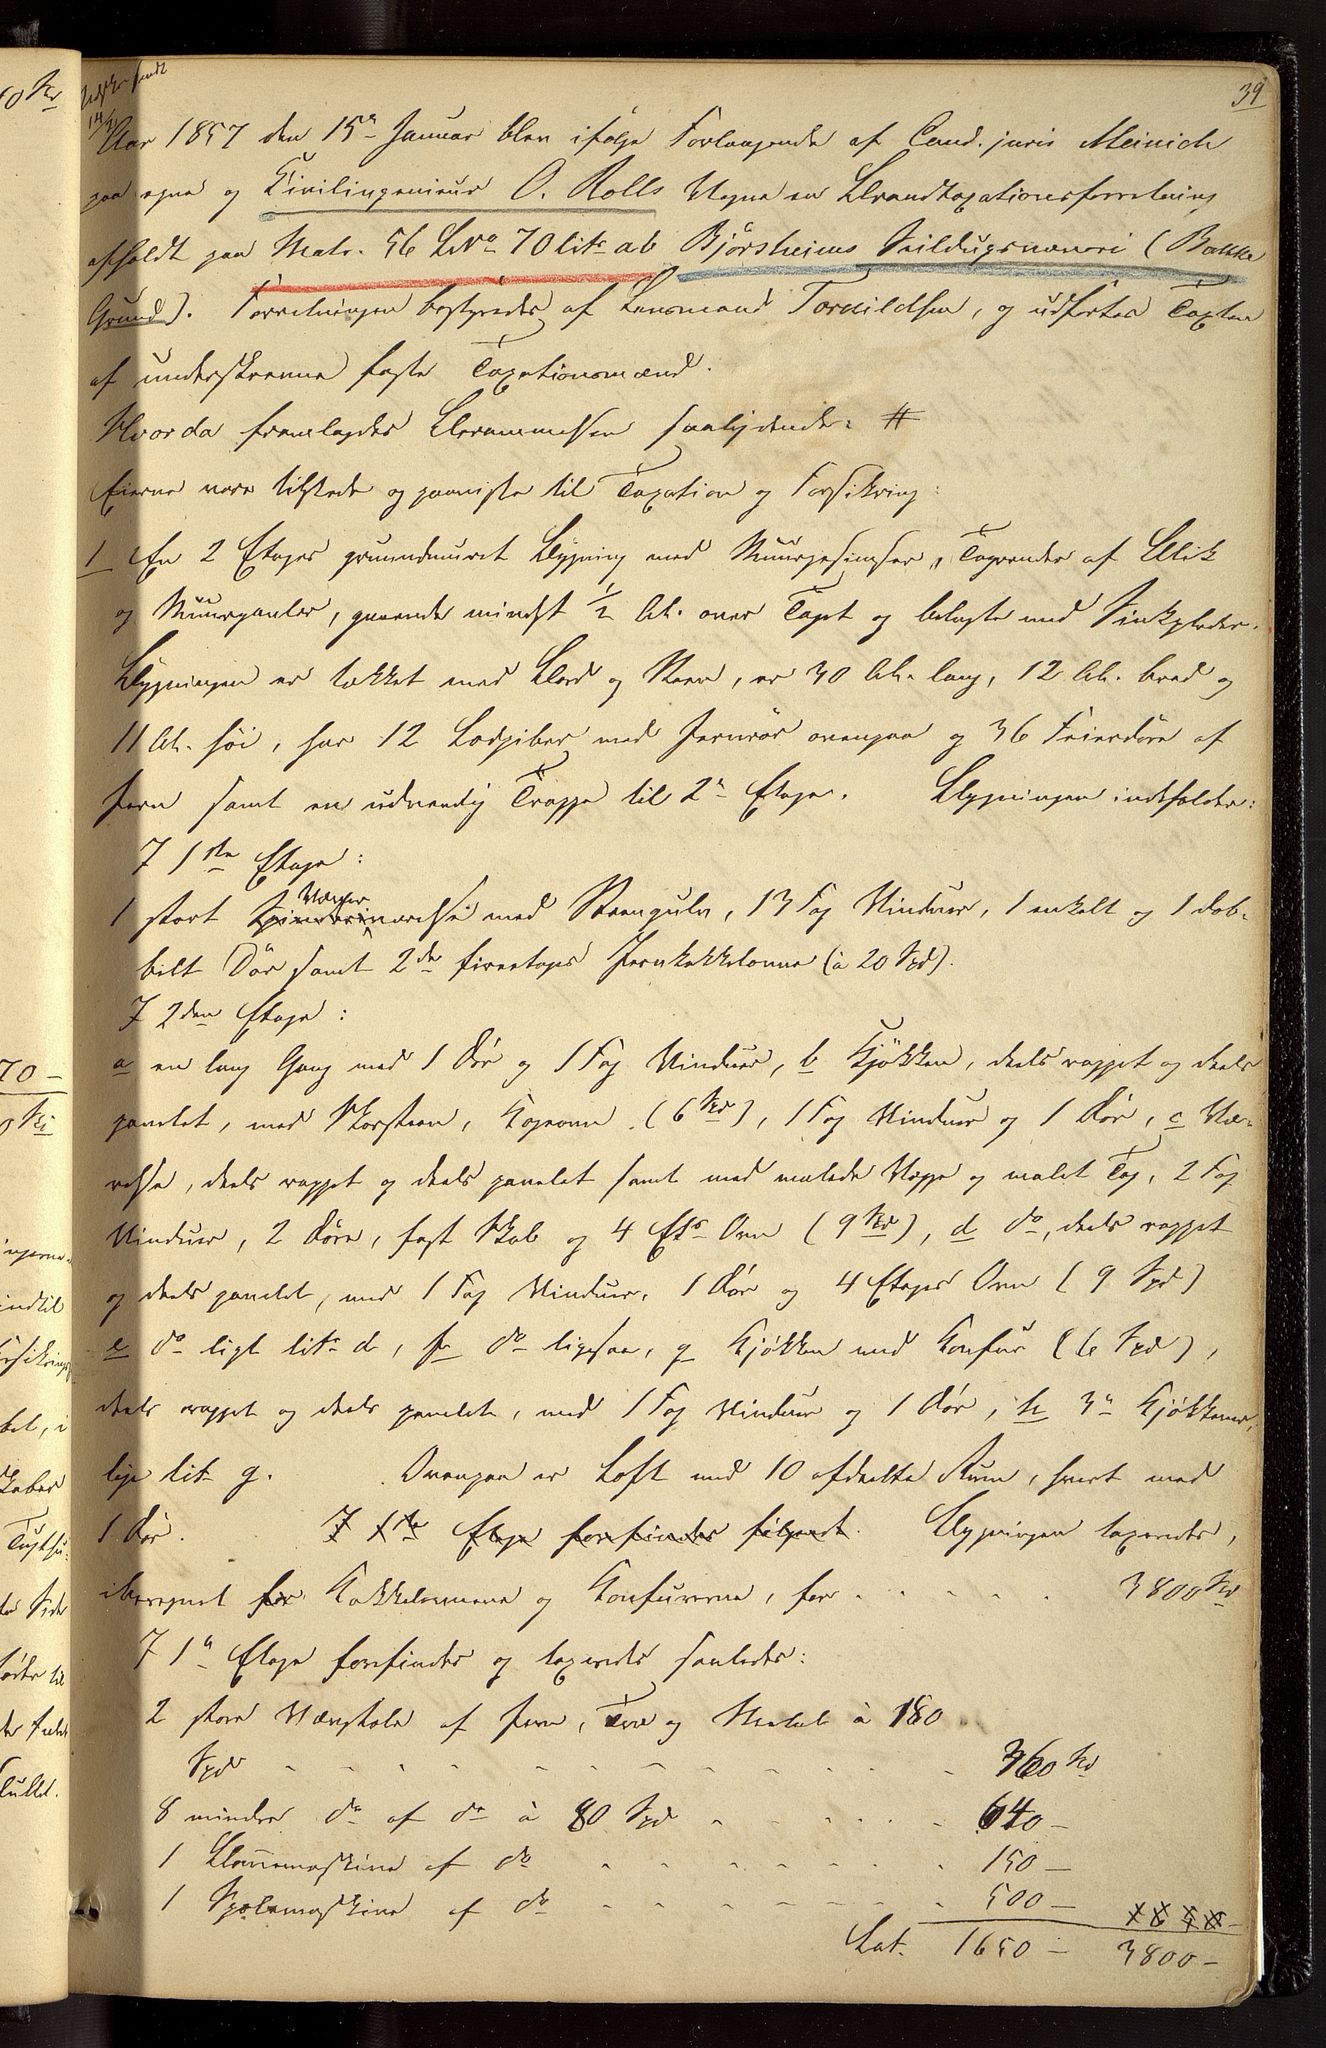 39
Aar 1857 den 15de Januar blev ifølge Forlangende af Cand. juris Meinich
paa egne og Civilingenieur O. Rolls Vegne en Brandtaxationsforretning
afholdt paa Matr. 56 LNo 70 litr ab Bjørsheims Seildugsvæveri (Bakke
Grund). Forretningen bestyredes af Lensmand Torkildsen, og udførtes Taxten
af underskrevne faste Taxationsmænd.
Hvorda fremlagdes Berammelsen saalydende: #
Eierne vare tilstede og paaviste til Taxation og Forsikring:
1 En 2 Etages grundmuret Bygning med Muurgesimser, Tagrender af Blik
og Muurgavler, gaaende mindst 1/2 Al. over Taget og belagte med Sinkplader.
Bygningen er tækket med Bord og Steen, er 30 Al. lang, 12 Al. bred og
11 Al. høi, har 12 Lodpiber med Jernrør ovenpaa og 36 Feierdøre af
Jern samt en udvendig Trappe til 2n Etage. Bygningen indeholder:
I 1ste Etage:
1 stort Væver værelse med Steengulv, 13 Fag Vinduer, 1 enkelt og 1 dob-
belt Dør samt 2de fireetages Jernkakkelovne (à 20 Spd).
I 2den Etage:
a en lang Gang med 1 Dør og 1 Fag Vinduer, b Kjøkken, deels rappet og deels
panelet, med Skorsteen, Kogeovn (6 Spd), 1 Fag Vinduer og 1 Dør, c Væ-
relse, deels rappet og deels panelet samt med malede Vægge og malet Tag, 2 Fag
Vinduer, 2 Døre, fast Skab og 4 Ets Ovn (9 Spd), d do, deels rappet
og deels panelet, med 1 Fag Vinduer, 1 Dør og 4 Etages Ovn (9 Spd)
e do ligt litr d, f do ligesaa, g Kjøkken med Komfur (6 Spd),
deels rappet og deels panelet, med 1 Fag Vinduer og 1 Dør, h 3n Kjøkkener,
lige litr g. Ovenpaa er Loft med 10 afdeelte Rum, hvert med
1 Dør. I 1ste Etage forefindes følgende. Bygningen taxeredes,
iberegnet for Kakkelovnene og Komfurerne, for 3800 Spd
I 1n Etage forefindes og taxeredes saaledes:
2 store Vævstole af Jern, Træ og Metal à 180
Spd 360 Spd
8 mindre do af do à 80 Spd 640 –
1 maskine af do 150 –
1 Spolemaskine af do 500 –
Lat. 1650 – 3800 –